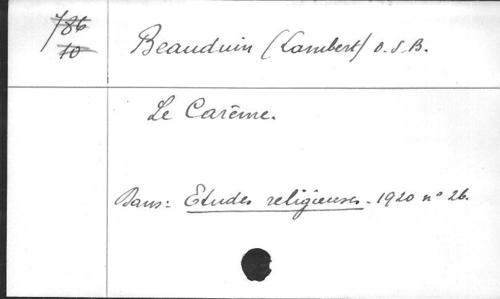 786
10
Beauduin (Lambert) O.S.B.
Le Carême.
Dans: Etudes religieuses - 1920 n° 26.